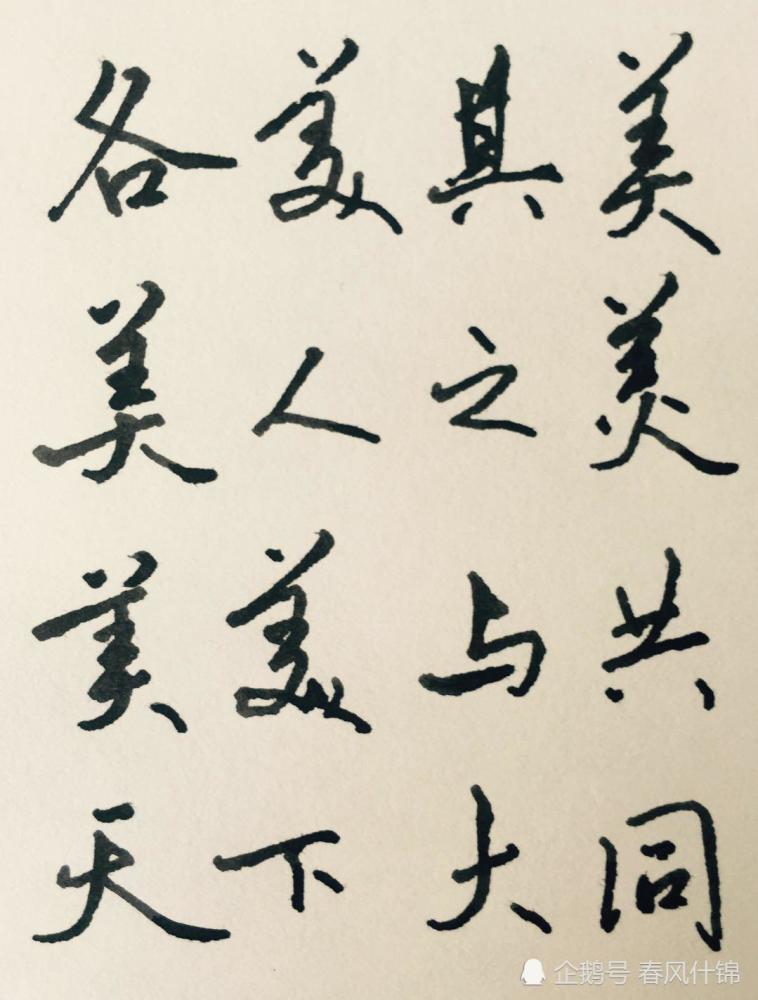 各美其美
美人之美
美美与共
天下大同
企鹅号 春风什锦